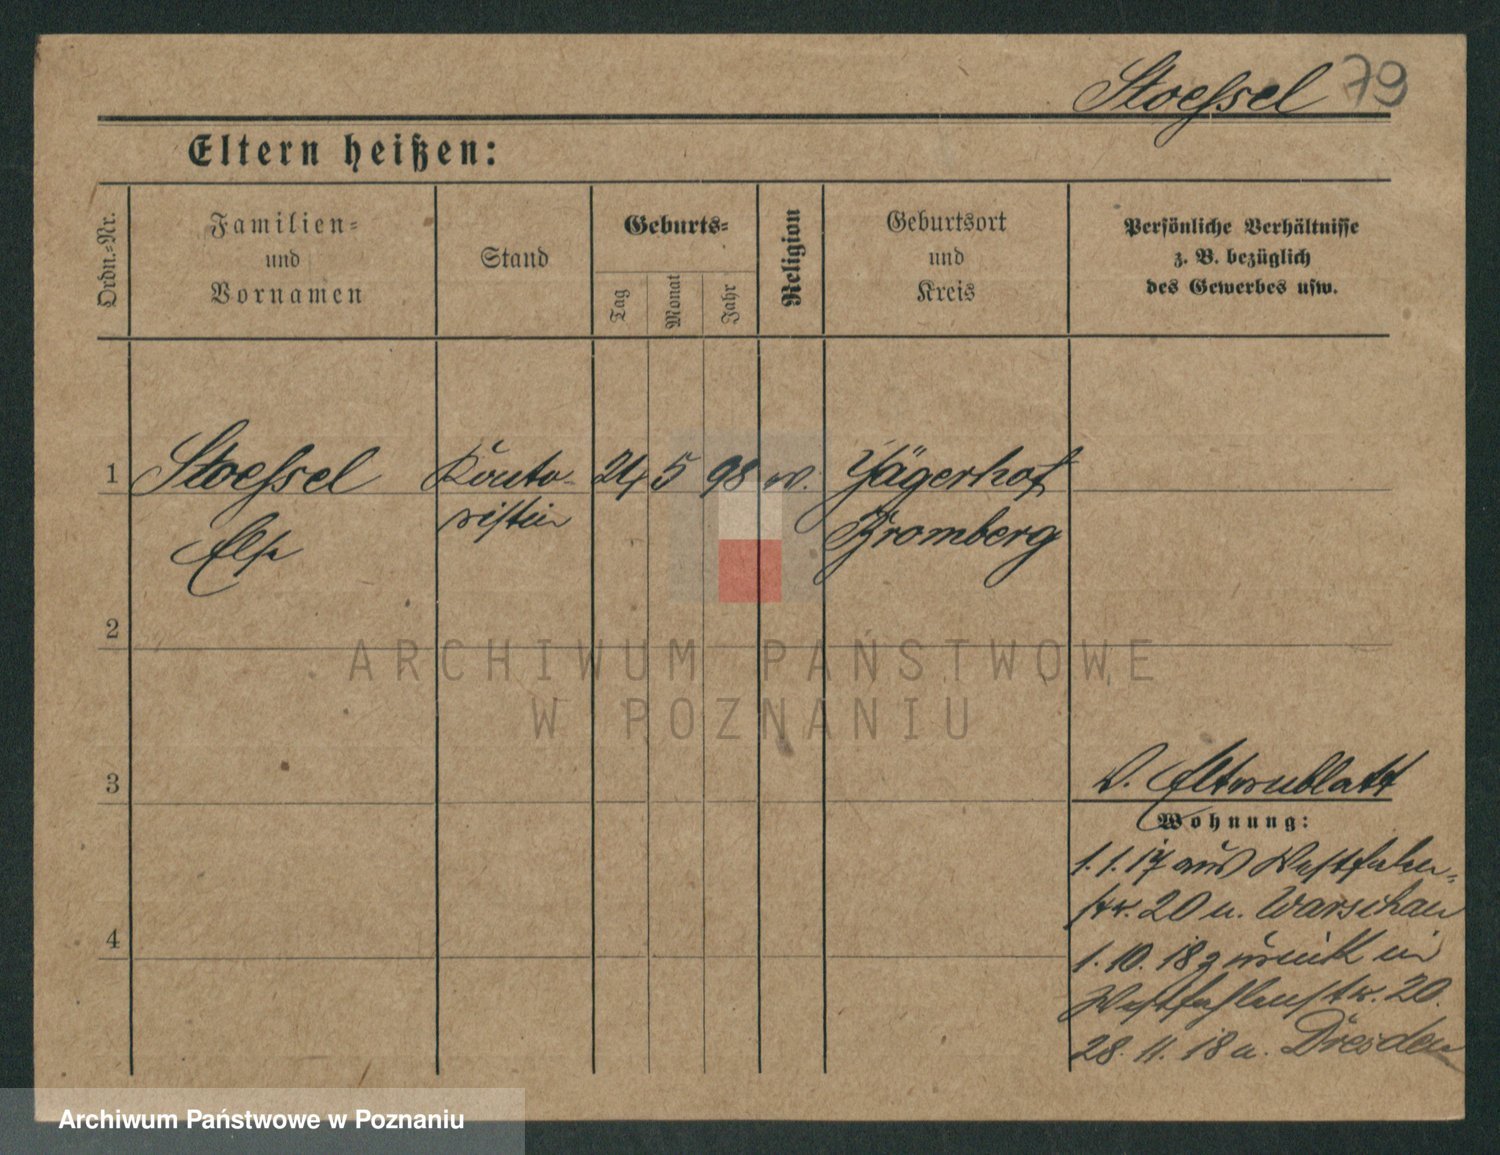 Stoessel 79
Eltern heißen:
Ordn.-Nr.
Familien-
und
Vornamen
Stand
Geburts-
Tag
Monat
Jahr
Religion
Geburtsort
und
Kreis
Persönliche Verhältnisse
z. B. bezüglich
des Gewerbes usw.
1 Stoessel Konto- 24 5 98 Jägerhof
Else ristin Bromberg
2
ARCHIWUM PAŃSTWOWE
W POZNANIU
3
Elternblatt
Wohnung:
1.1.17 aus Westfalen-
str. 20 n. Warschau
4
1.10.18 zurück in
Westfalenstr. 20.
28.11.18 n. Dresden
Archiwum Państwowe w Poznaniu